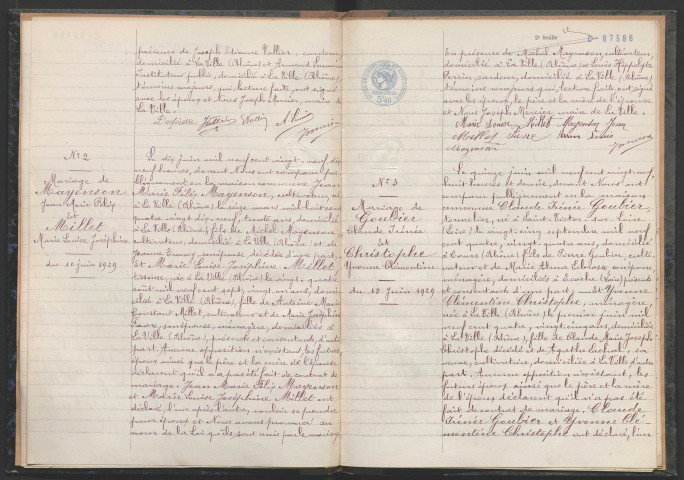 présence de Joseph Etienne Vallier, cardeur,
domicilié à La Ville (Rhône) et Armand
Instituteur public, domicilié à La Ville (Rhône),
témoins majeurs qui, lecture faite, ont signé
avec les époux et Nous Joseph Mercier, maire de
La Ville.
N° 2
Mariage de
Mayenson
Jean Marie Félix
et
Millet
Marie Louise Joséphine
du 10 juin 1929
Le dix juin mil neuf cent vingt-neuf, dix
neuf heures, devant Nous ont comparu pu-
bliquement en la maison commune Jean
Marie Félix Mayenson, cultivateur, né
à La Ville (Rhône) le seize mars mil huit cent
quatre vingt dix-neuf, trente ans, domicilié
à La Ville (Rhône), fils de Michel Mayenson
cultivateur, domicilié à La Ville (Rhône) et de
Jeanne son épouse décédée d'une part
Et Marie Louise Joséphine Millet
tisseuse, née à La Ville (Rhône) le vingt quatre
août mil neuf cent sept, vingt un ans, domici-
liée à La Ville (Rhône), fille de Antoine Marie
Constant Millet, cultivateur et de Marie Joséphine
Favre, son épouse, ménagère, domiciliés à
La Ville (Rhône), présents et consentants, d'autre
part. Aucune opposition n'existant, les futurs
époux ainsi que le père et la mère de l'épouse
déclarent qu'il n'a pas été fait de contrat de
mariage. Jean Marie Félix Mayenson
et Marie Louise Joséphine Millet ont
déclaré, l'un après l'autre, vouloir se prendre
pour époux et Nous avons prononcé au
nom de la Loi qu'ils sont unis par le mariage
2e feuille
87386
En présence de Michel Mayenson, cultivateur,
domicilié à La Ville (Rhône) et Louis Hippolyte
Perrin, cardeur, domicilié à La Ville (Rhône)
témoins majeurs qui, lecture faite, ont signé
avec les époux, le père et la mère de l'épouse
et Nous Joseph Mercier, maire de La Ville.
Marie Louise Millet Mayenson Jean
Millet Favre Perrin Louis
Mayenson
N° 3
Mariage de
Goubier
Claude Irénée
et
Christophe
Yvonne Clémentine
du 15 Juin 1929
Le quinze juin mil neuf cent vingt neuf,
huit heures et demie, devant Nous ont
comparu publiquement en la maison
commune Claude Irénée Goubier,
tonnelier, né à Saint Victor sur
(Loire) le vingt-cinq septembre mil neuf
cent quatre, vingt-quatre ans, domicilié
à Cours (Rhône) fils de Pierre Goubier, culti-
vateur et de Marie son épouse,
ménagère, domiciliés à (Loire) présents
et consentants d'une part, et Yvonne
Clémentine Christophe, ménagère,
née à La Ville (Rhône) le premier juin mil
neuf cent quatre, vingt cinq ans, domiciliée
à La Ville (Rhône), fille de Claude Marie Joseph
Christophe décédé et de Agathe sa
veuve, domiciliée à La Ville d'autre
part. Aucune opposition n'existant, les
futurs époux ainsi que le père et la mère
de l'époux déclarent qu'il n'a pas été
fait de contrat de mariage. Claude
Irénée Goubier et Yvonne Clé-
mentine Christophe ont déclaré, l'un